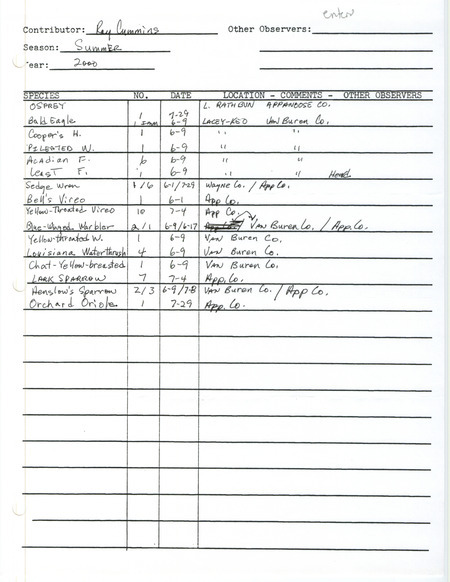 enter
Contributor: Ray Cummins Other Observers:
Season: Summer
Year: 2000
SPECIES NO. DATE LOCATION - COMMENTS - OTHER OBSERVERS
OSPREY 1 7-29 L. RATHBUN APPANOOSE CO.
Bald Eagle 1 Imm 6-9 LACEY-KEO Van Buren Co.
Cooper's H. 1 6-9 " "
PILEATED W. 1 6-9 " "
Acadian F. 6 6-9 " "
Least F. 1 6-9 " " Heard
Sedge Wren /6 6-1/7-29 Wayne Co. / App Co.
Bell's Vireo 1 6-1 App Co.
Yellow-Throated Vireo 10 7-4 App Co.
Blue-Winged Warbler 2/1 6-9/6-17 Van Buren Co. / App. Co.
Yellow-throated W. 1 6-9 Van Buren Co.
Louisiana Waterthrush 4 6-9 Van Buren Co.
Chat-Yellow-breasted 1 6-9 Van Buren Co.
LARK SPARROW 7 7-4 App. Co.
Henslow's Sparrow 2/3 6-9/7-8 Van Buren Co. / App Co.
Orchard Oriole 1 7-29 App. Co.